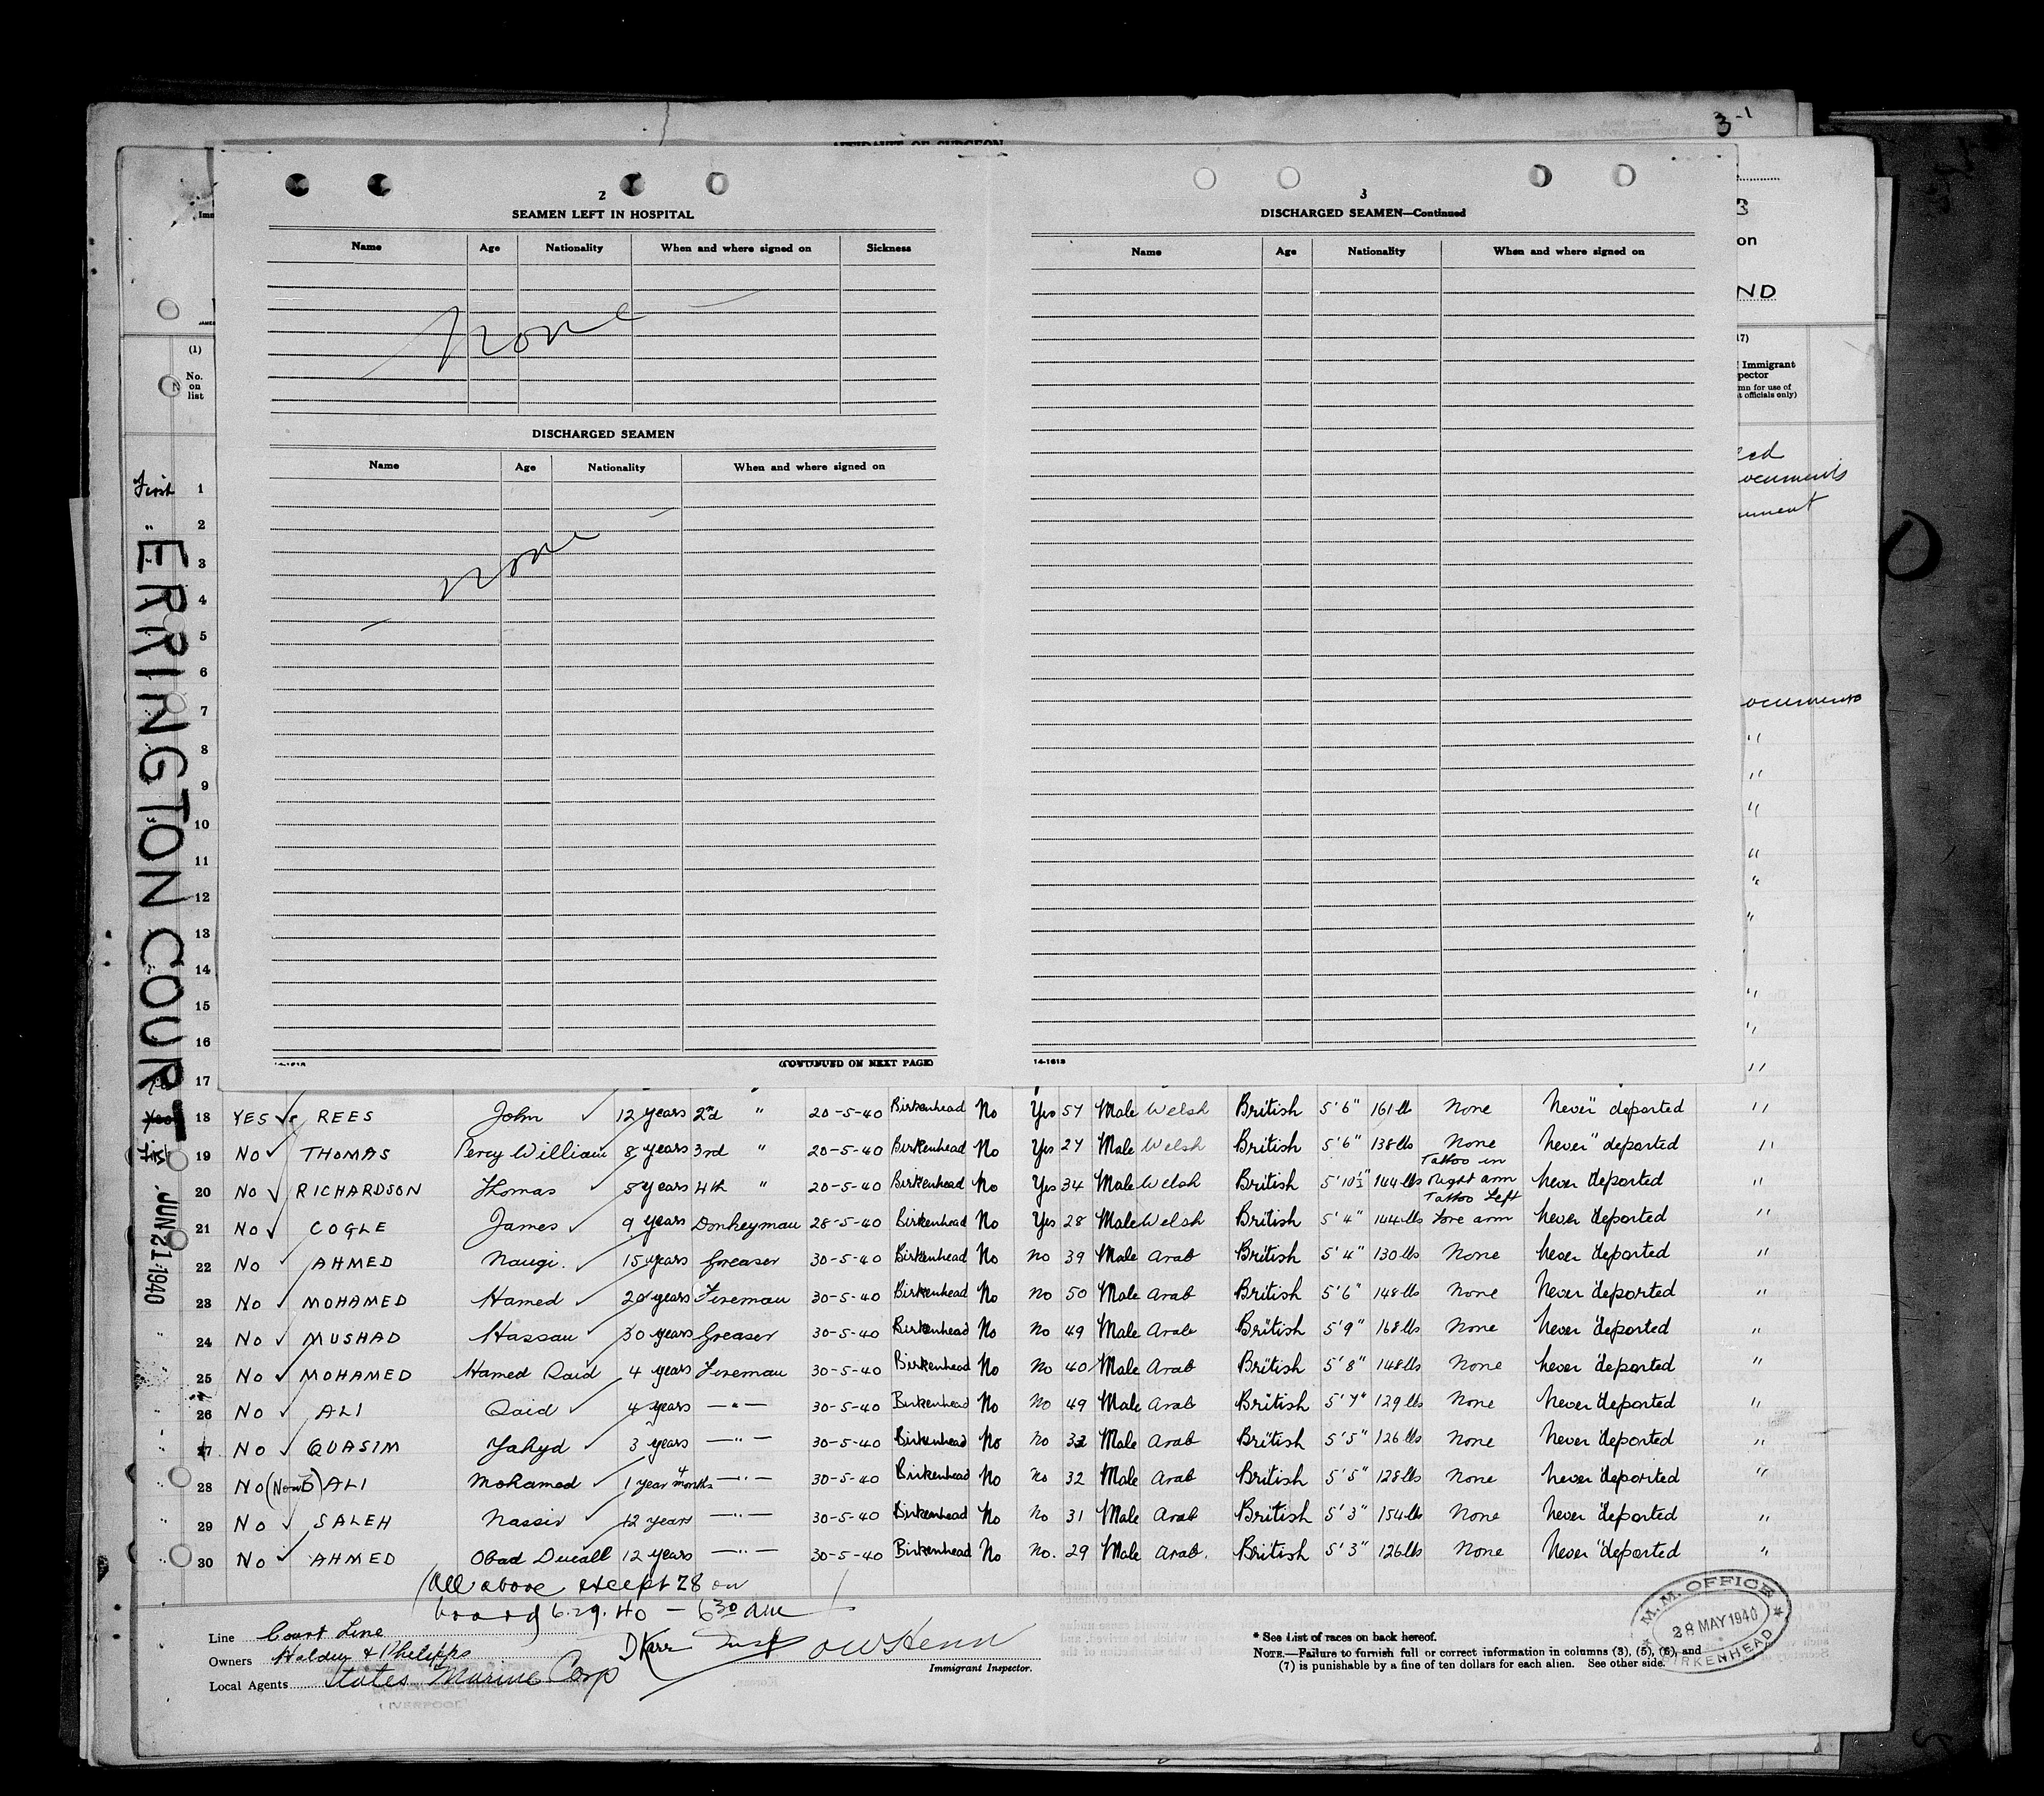 3-1
AFFIDAVIT OF SURGEON
2
SEAMEN LEFT IN HOSPITAL
Name Age Nationality When and where signed on Sickness
None
DISCHARGED SEAMEN
Name Age Nationality When and where signed on
None
14-1613 (CONTINUED ON NEXT PAGE)
3
DISCHARGED SEAMEN—Continued
Name Age Nationality When and where signed on
14-1613
ND
(1)
No.
on
list
Immigrant
officials only)
ERRINGTON COURT
JUN 21 1940
First 1
" 2
3
4
5
6
7
8
9
10
11
12
13
14
15
16
17
18 YES REES John 12 years 2nd " 20-5-40 Birkenhead No Yes 57 Male Welsh British 5'6" 161 lb None Never deported "
19 No THOMAS Percy William 8 years 3rd " 20-5-40 Birkenhead No Yes 27 Male Welsh British 5'6" 138 lbs None Never deported "
20 No RICHARDSON Thomas 5 years 4th " 20-5-40 Birkenhead No Yes 34 Male Welsh British 5'10½" 144 lbs Tattoo in Right arm Never deported "
21 No COGLE James 9 years Donkeyman 28-5-40 Birkenhead No Yes 28 Male Welsh British 5'4" 144 lbs Tattoo Left Fore arm Never deported "
22 No AHMED Naugi 15 years Greaser 30-5-40 Birkenhead No No 39 Male Arab British 5'4" 130 lbs None Never deported "
23 No MOHAMED Hamed 20 years Fireman 30-5-40 Birkenhead No No 50 Male Arab British 5'6" 148 lbs None Never deported "
24 No MUSHAD Hassan 30 years Greaser 30-5-40 Birkenhead No No 49 Male Arab British 5'9" 168 lbs None Never deported "
25 No MOHAMED Hamed Said 4 years Fireman 30-5-40 Birkenhead No No 40 Male Arab British 5'8" 148 lbs None Never deported "
26 No ALI Said 4 years —"— 30-5-40 Birkenhead No No 49 Male Arab British 5'7" 129 lbs None Never deported "
27 No QUASIM Yahyd 3 years —"— 30-5-40 Birkenhead No No 32 Male Arab British 5'5" 126 lbs None Never deported "
28 No ALI Mohamed 1 year 4 months —"— 30-5-40 Birkenhead No No 32 Male Arab British 5'5" 128 lbs None Never deported "
29 No SALEH Nassir 12 years —"— 30-5-40 Birkenhead No No 31 Male Arab British 5'3" 154 lbs None Never deported "
30 No AHMED Obad Ducall 12 years —"— 30-5-40 Birkenhead No No. 29 Male Arab. British 5'3" 126 lbs None Never deported "
(All above except 28 on
board 6.29.40 — 6 30 am
Line Court Line
Owners Haldin & Philipps
Local Agents States Marine Corp
LIVERPOOL
Immigrant Inspector.
* See List of races on back hereof.
NOTE.—Failure to furnish full or correct information in columns (3), (5), (6), and
(7) is punishable by a fine of ten dollars for each alien. See other side.
M. M. OFFICE
28 MAY 1940
BIRKENHEAD